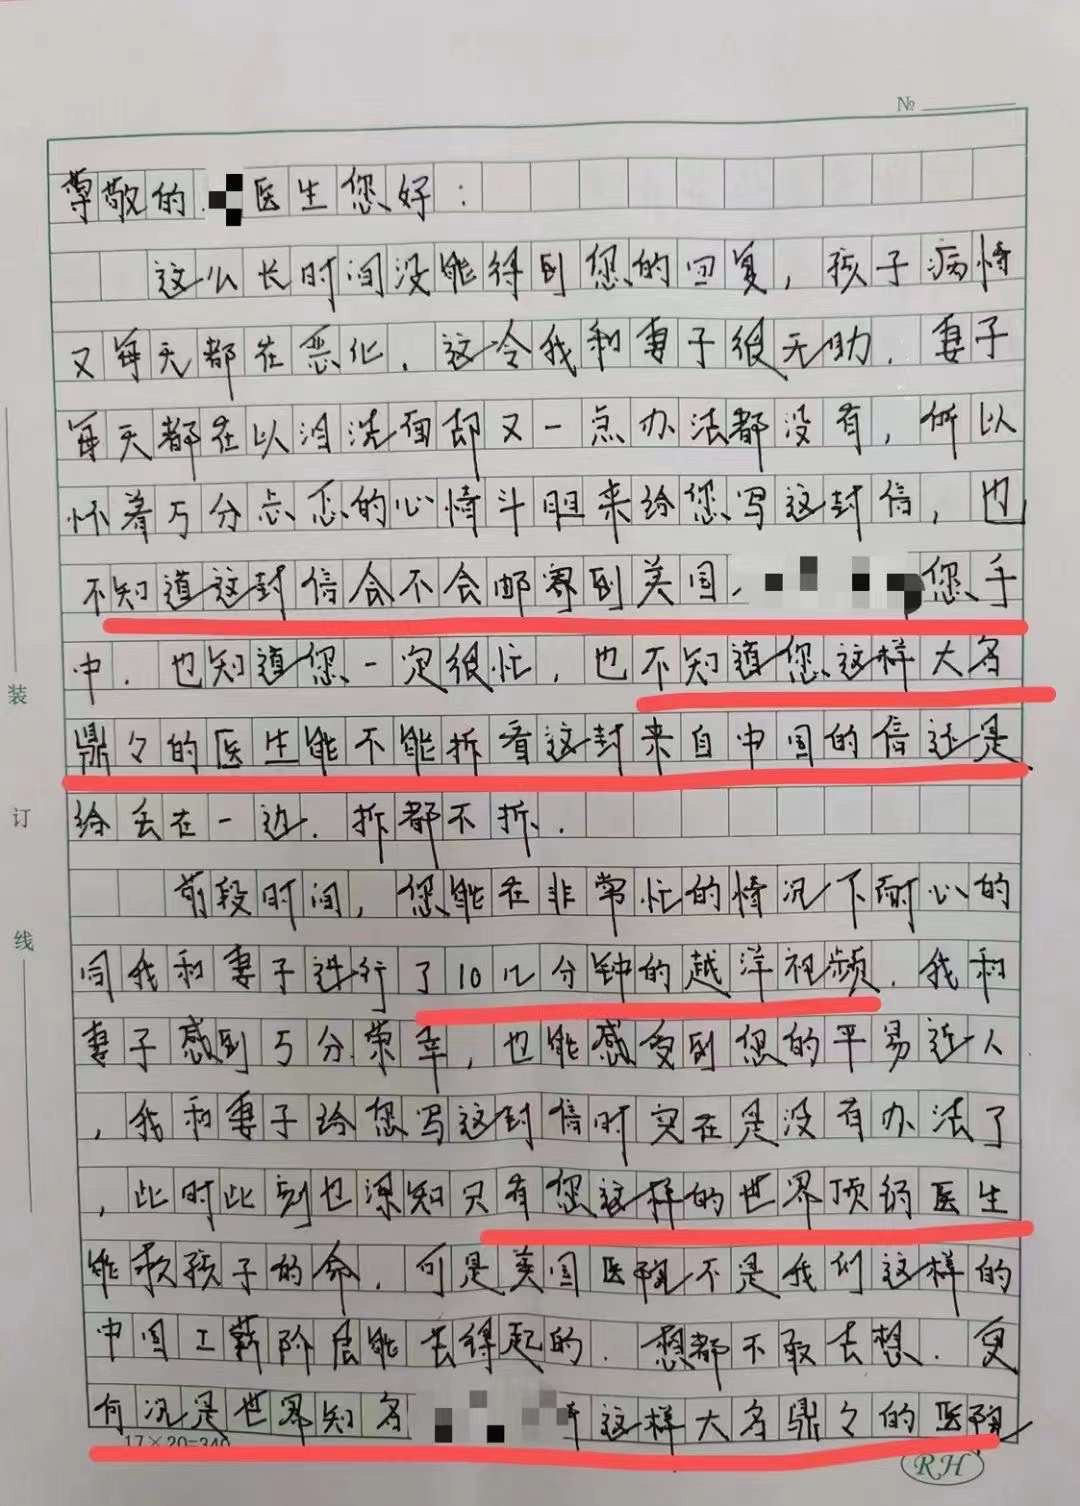 №
尊敬的 医生您好：
这么长时间没能得到您的回复，孩子病情
又每天都在恶化，这令我和妻子很无助，妻子
每天都在以泪洗面却又一点办法都没有，所以
怀着万分忐忑的心情斗胆来给您写这封信，也
不知道这封信会不会邮寄到美国， 您手
中，也知道您一定很忙，也不知道您这样大名
鼎々的医生能不能拆看这封来自中国的信还是
给丢在一边，拆都不拆．
前段时间，您能在非常忙的情况下耐心的
同我和妻子进行了10几分钟的越洋视频，我和
妻子感到万分荣幸，也能感受到您的平易近人
，我和妻子给您写这封信时实在是没有办法了
，此时此刻也深知只有您这样的世界顶级医生
能救孩子的命，可是美国医院不是我们这样的
中国工薪阶层能去得起的．想都不敢去想．更
何况是世界知名 这样大名鼎々的医院
17×20=340
RH
装
订
线